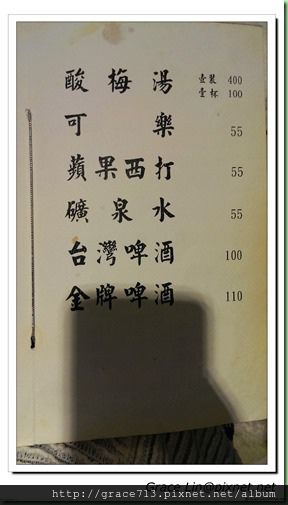 酸梅湯 壺裝 400
壹杯 100
可樂 55
蘋果西打 55
礦泉水 55
台灣啤酒 100
金牌啤酒 110
Grace Lin@pixnet.net
http://grace713.pixnet.net/album